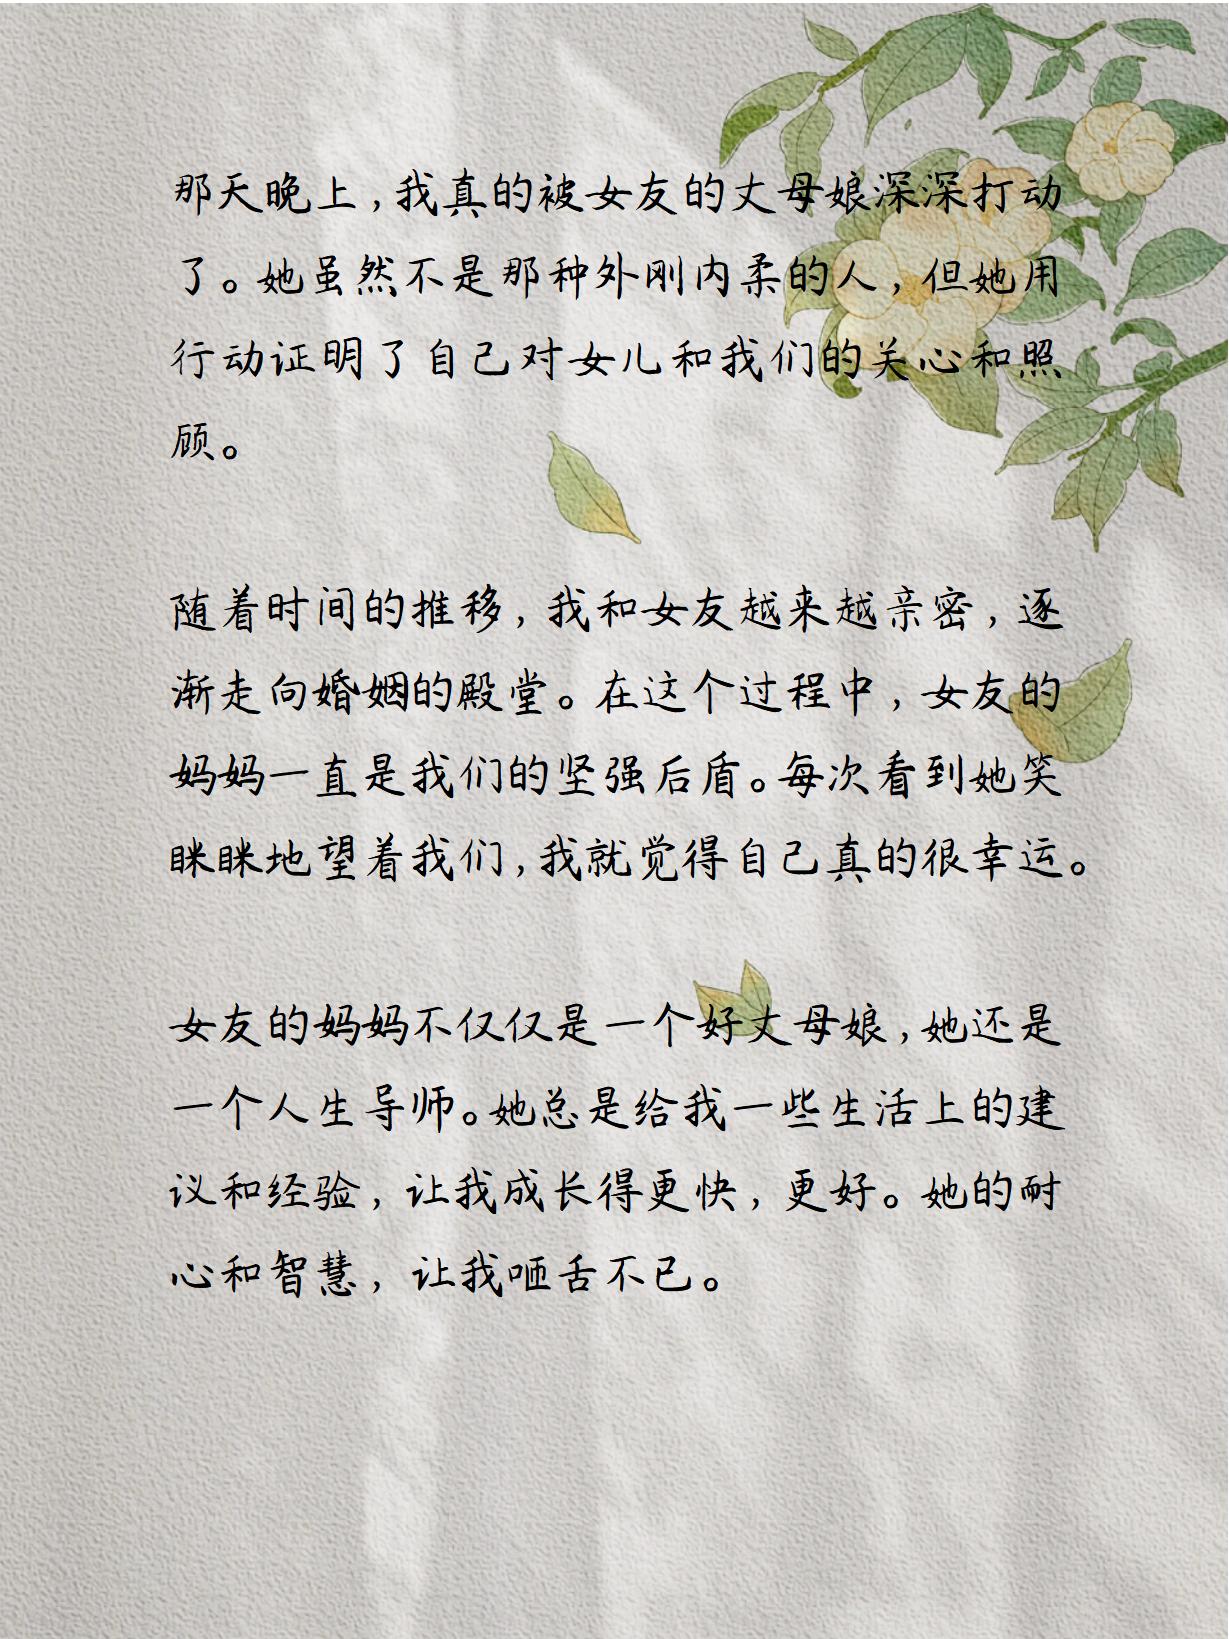 那天晚上，我真的被女友的丈母娘深深打动
了。她虽然不是那种外刚内柔的人，但她用
行动证明了自己对女儿和我们的关心和照
顾。
随着时间的推移，我和女友越来越亲密，逐
渐走向婚姻的殿堂。在这个过程中，女友的
妈妈一直是我们的坚强后盾。每次看到她笑
眯眯地望着我们，我就觉得自己真的很幸运。
女友的妈妈不仅仅是一个好丈母娘，她还是
一个人生导师。她总是给我一些生活上的建
议和经验，让我成长得更快，更好。她的耐
心和智慧，让我咂舌不已。